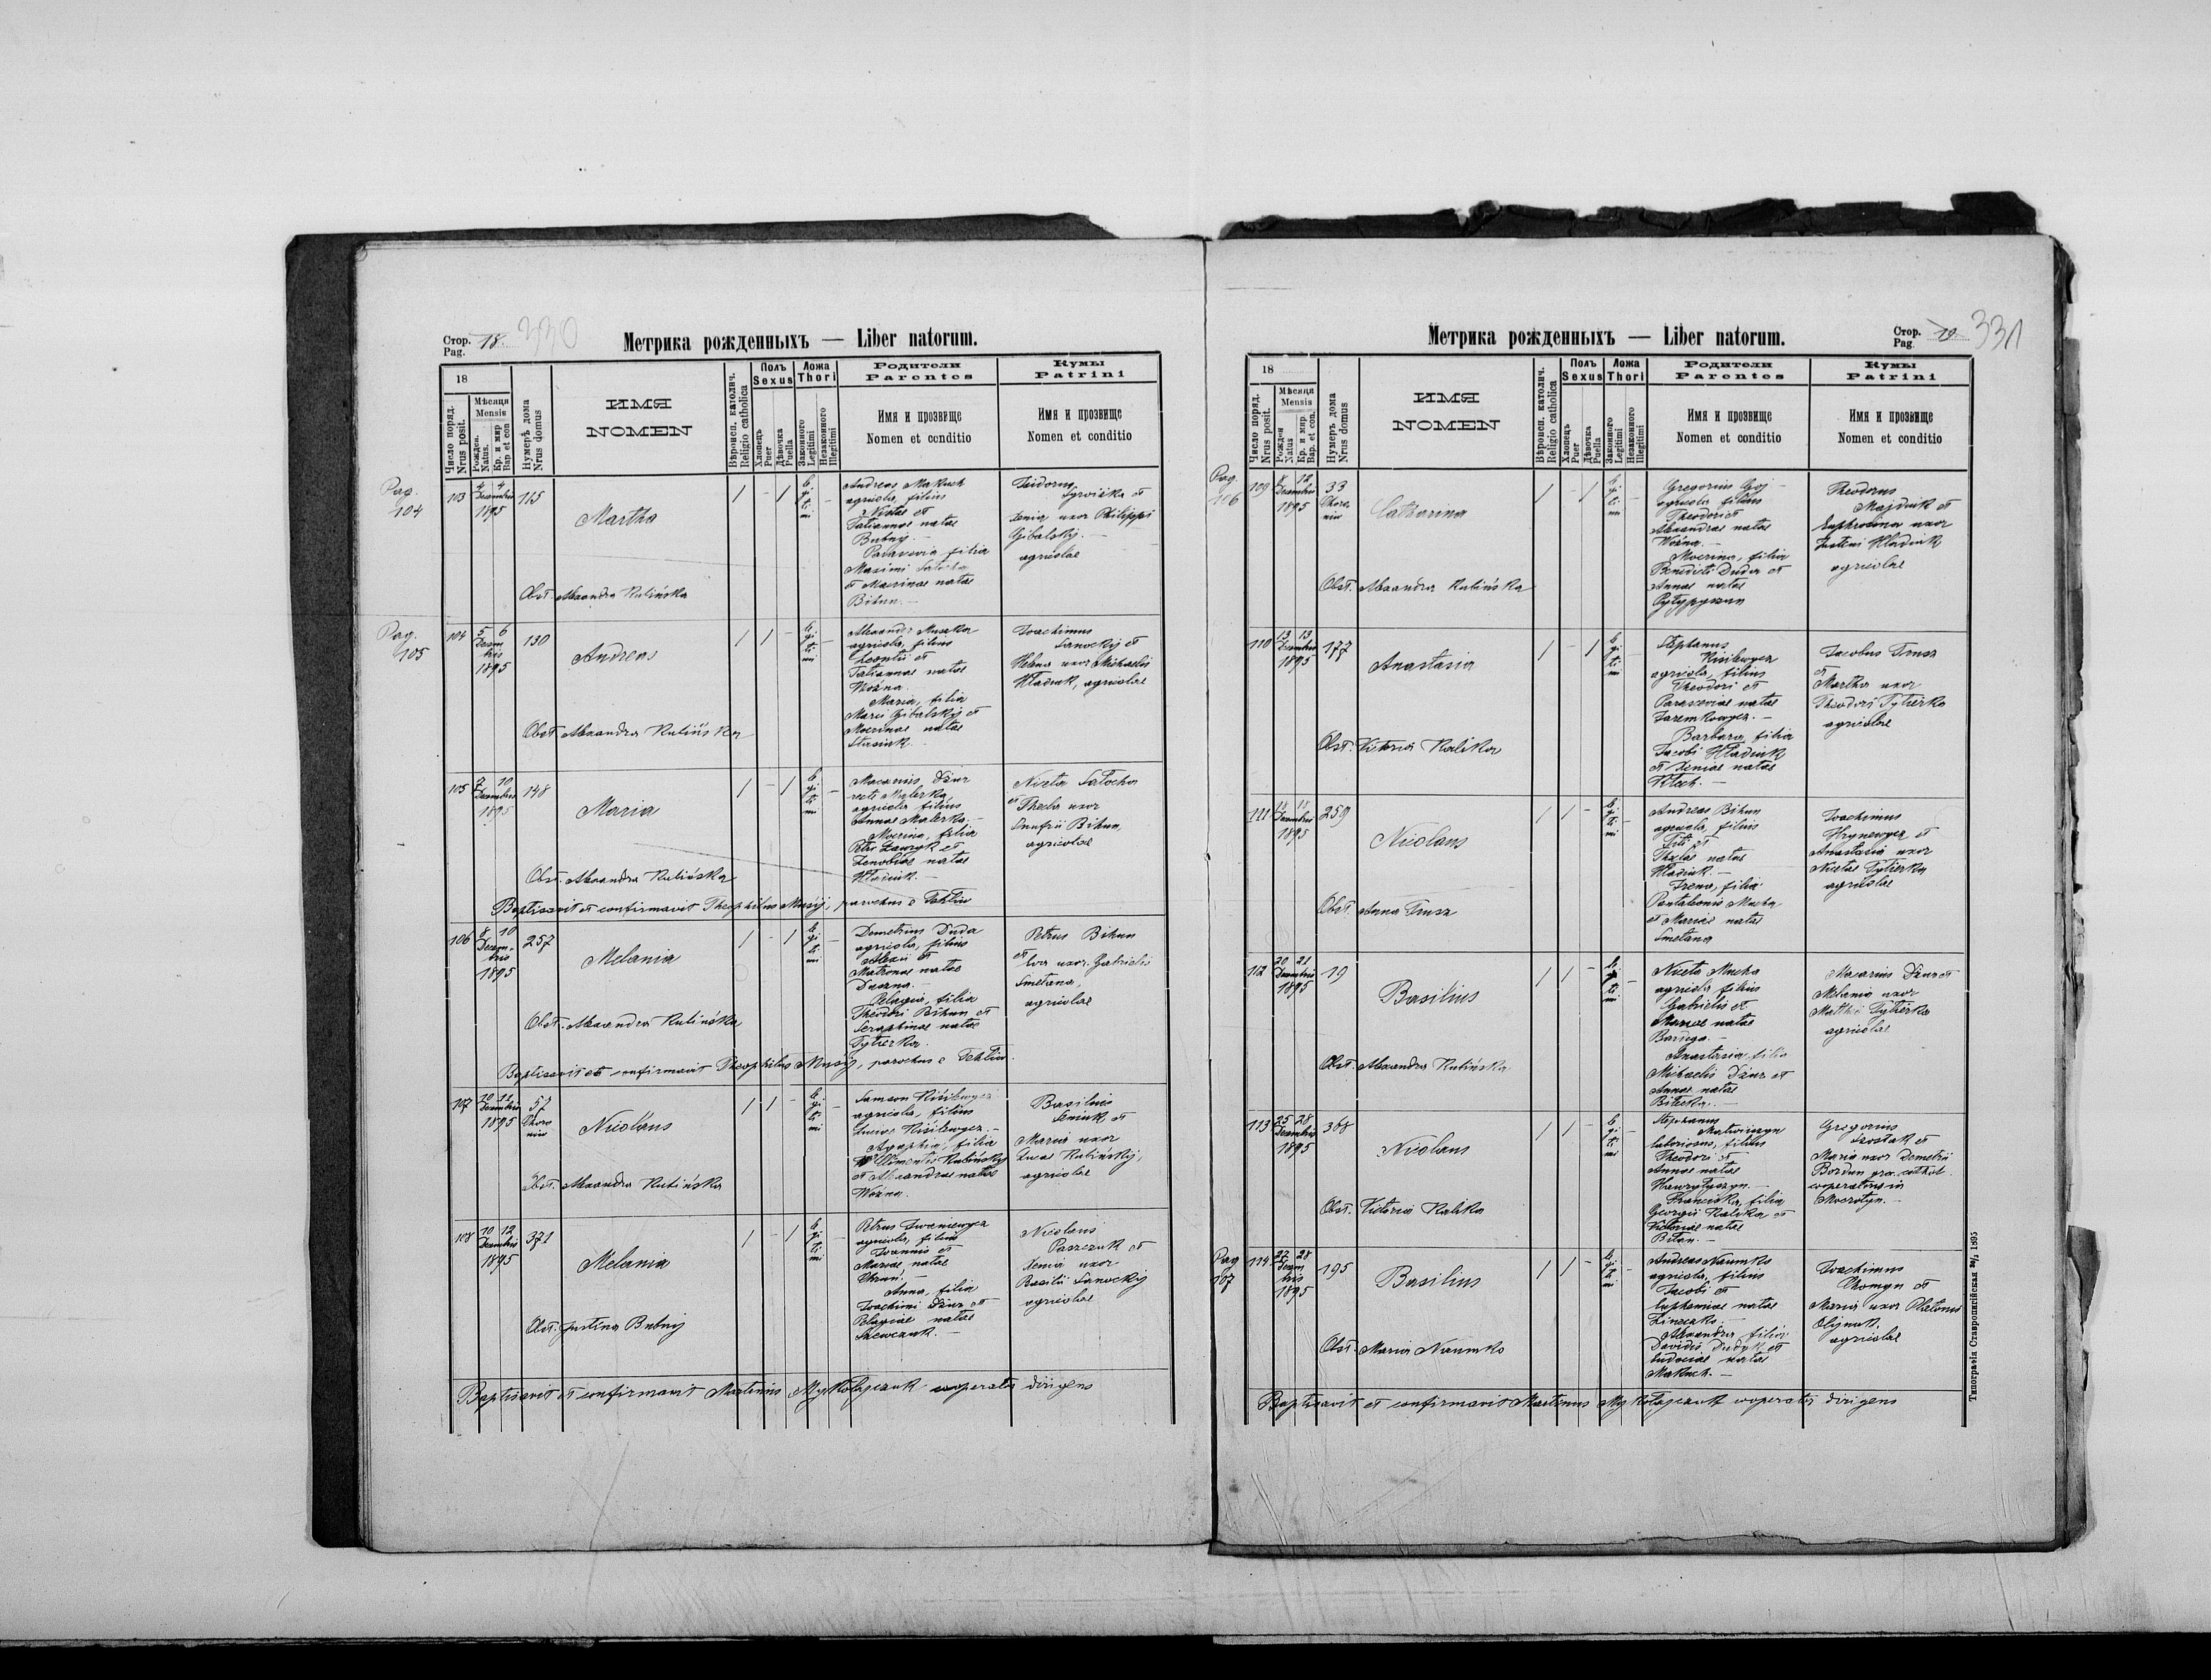 Стор. 18. 330
Pag.
Метрика рожденныхъ — Liber natorum.
18
Число поряд.
Nrus posit.
Мѣсяця
Mensis
Рожден.
Natus.
Кр. и мир
Bap et con
Нумеръ дома
Nrus domus
ИМЯ
NOMEN
Вѣроисп. католич.
Religio catholica
Полъ
Sexus
Хлопець
Puer
Дѣвочка
Puella
Ложа
Thori
Законного
Legitimi
Незаконного
Illegitimi
Родители
Parentes
Имя и прозвище
Nomen et conditio
Кумы
Patrini
Имя и прозвище
Nomen et conditio
Pag.
104
103
4 4
Decembris
1895
115
Martha
Obst. Alexandra Kulińska
/ - / -
le
gi
ti
mi
Andreas Makuch
agricola, filius
Nicetae et
Tatiannae natae
Bubnij. —
Parascevia filia
Maximi
et Macrinae natae
Bihun. —
Isidorus
et
Xenia uxor Philippi
Gibalskij. —
agricolae
Pag.
105
104
5 6
Decem
bris
1895
130
Andreas
Obst. Alexandra Kulińska
/ / - -
le
gi
ti
mi
Alexander Muszka
agricola, filius
Leontii et
Tatiannae natae
Woźna.
Maria, filia
Marci Gibalskij et
Macrinae natae
Stasiuk. —
Joachimus
Sanockij et
Helena uxor Michaelis
Hładiuk, agricolae
105
7 10
Decembris
1895
148
Maria
Obst. Alexandra Kulińska
/ - / -
le
gi
ti
mi
Macarius Dziur
recte Malerka,
agricola filius
Annae Malerka. —
Macrina, filia
Petri Ławryk et
Zenobiae natae
Hładiuk. —
Niceta Satocha
et Thecla uxor
Onufrii Bihun,
agricolae
Baptisavit et confirmavit Theophilus Musij, parochus e Tehlin
106
8 10
Decem-
bris
1895
257
Melania
Obst. Alexandra Kulińska
/ - / -
le
gi
ti
mi
Demetrius Duda
agricola, filius
Alexii et
Matronae natae
Duczna. —
Pelagia, filia
Theodori Bihun et
Seraphinae natae
Tytierka.
Petrus Bihun
et
Eva uxor Gabrielis
Smetana,
agricolae
Baptisavit et confirmavit Theophilus Musij, parochus e Tehlin.
107
10 11
Decembris
1895
57
Choro
niw
Nicolaus
Obst. Alexandra Kulińska
/ / - -
le
gi
ti
mi
Samson Kisilewycz
agricola, filius
Lucae Kisilewycz. —
Agaphia, filia
Clementis Kulińskij
et Alexandrae natae
Woźna.
Basilius
Seniuk et
Maria uxor
Lucae Kulińskij,
agricolae
108
10 12
Decembris
1895
371
Melania
Obst. Justina Bubnij
/ - / -
le
gi
ti
mi
Petrus Iwaniewycz
agricola, filius
Joannis et
Mariae natae
Anna, filia
Joachimi Dziur et
Pelagiae natae
Szewczuk. —
Nicolaus
Paszczuk et
Xenia uxor
Basilii Sanockij
agricolae
Baptisavit et confirmavit Martinus Mykołajczuk cooperator dirigens
Метрика рожденныхъ — Liber natorum.
Стор. 19. 331
Pag.
18
Число поряд.
Nrus posit.
Мѣсяця
Mensis
Рожден
Natus
Кр. и мир
Bap. et con.
Нумеръ дома
Nrus domus
ИМЯ
NOMEN
Вѣроисп. католич.
Religio catholica
Полъ
Sexus
Хлопець
Puer
Дѣвочка
Puella
Ложа
Thori
Законного
Legitimi
Незаконного
Illegitimi
Родители
Parentes
Имя и прозвище
Nomen et conditio
Кумы
Patrini
Имя и прозвище
Nomen et conditio
Pag.
106
109
8 12
Decembris
1895
33
Choro,
niw
Catharina
Obst. Alexandra Kulińska
/ - / -
le
gi
ti
mi
Gregorius Goj —
agricola filius
Theodori et
Alexandrae natae
Woźna. —
Macrina, filia
Benedicti Duda et
Annae natae
Theodorus
Majdiuk et
Euphrosina uxor
Justini Hładiuk
agricolae
110
13 13
Decembris
1895
177
Anastasia
Obst. Victoria Kalika
/ - / -
le
gi
ti
mi
Stephanus
Kisilewycz
agricola, filius
Theodori et
Parasceviae natae
Jaremkowycz. —
Barbara, filia
Jacobi Hładiuk
et Xeniae natae
Kłach. —
Jacobus Trusz
et
Martha uxor
Theodori Tytierka
agricolae
111
Decembris
1895
259
Nicolaus
Obst. Anna Trusz
/ / - -
le
gi
ti
mi
Andreas Bihun
agricola, filius
Titi et
Theclae natae
Hładiuk. —
Irena, filia
Pantaleonis Mucha
et Mariae natae
Smetana
Joachimus
Hrynewycz et
Anastasia uxor
Nicetae Tytierka
agricolae
112
20 21
Decembris
1895
19
Basilius
Obst. Alexandra Kulińska
/ / - -
le
gi
ti
mi
Niceta Mucha
agricola filius
Gabrielis et
Mariae natae
Baryga. —
Anastasia, filia
Michaelis Dziur et
Annae natae
Bitecka. —
Macarius Dziur et
Melania uxor
Matthei Tytierka
agricolae
113
25 28
Decembris
1895
368
Nicolaus
Obst. Victoria Kalika
/ / - -
le
gi
ti
mi
Stephanus
Matwiiszyn
laboriosus, filius
Theodori et
Annae natae
Hawryłyszyn. —
Francisca, filia
Georgii Kalika et
Victoriae natae
Bitan. —
Gregorius
Szostak et
Maria uxor Demetrii
Bordun gr. cathol.
cooperatoris in
Mocrotyn. —
Pag
107
114
27 28
Decem
bris
1895
195
Basilius
Obst. Maria Naumko
/ / - -
le
gi
ti
mi
Andreas Naumko
agricola, filius
Jacobi et
Euphemiae natae
Zineczko. —
Alexandra filia
Davidis Dudyk et
Eudociae natae
Makuch. —
Joachimus
Chomyn et
Maria uxor Platonis
Olijnyk,
agricolae
Baptisavit et confirmavit Martinus Mykołajczuk cooperator dirigens
Типографія Ставропигійская 1895